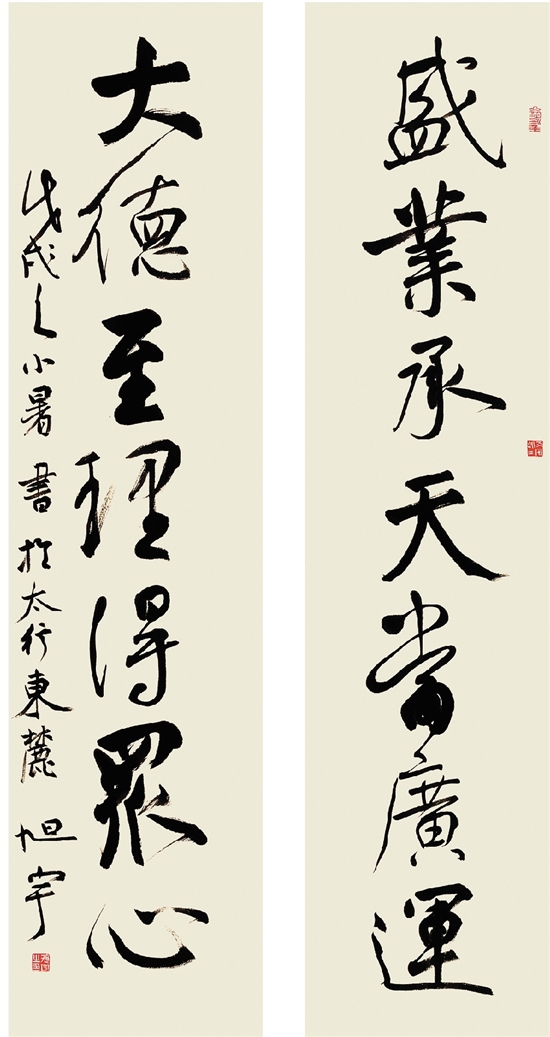 盛業承天當廣運
大德至理得眾心
戊戌之小暑書於太行東麓 旭宇